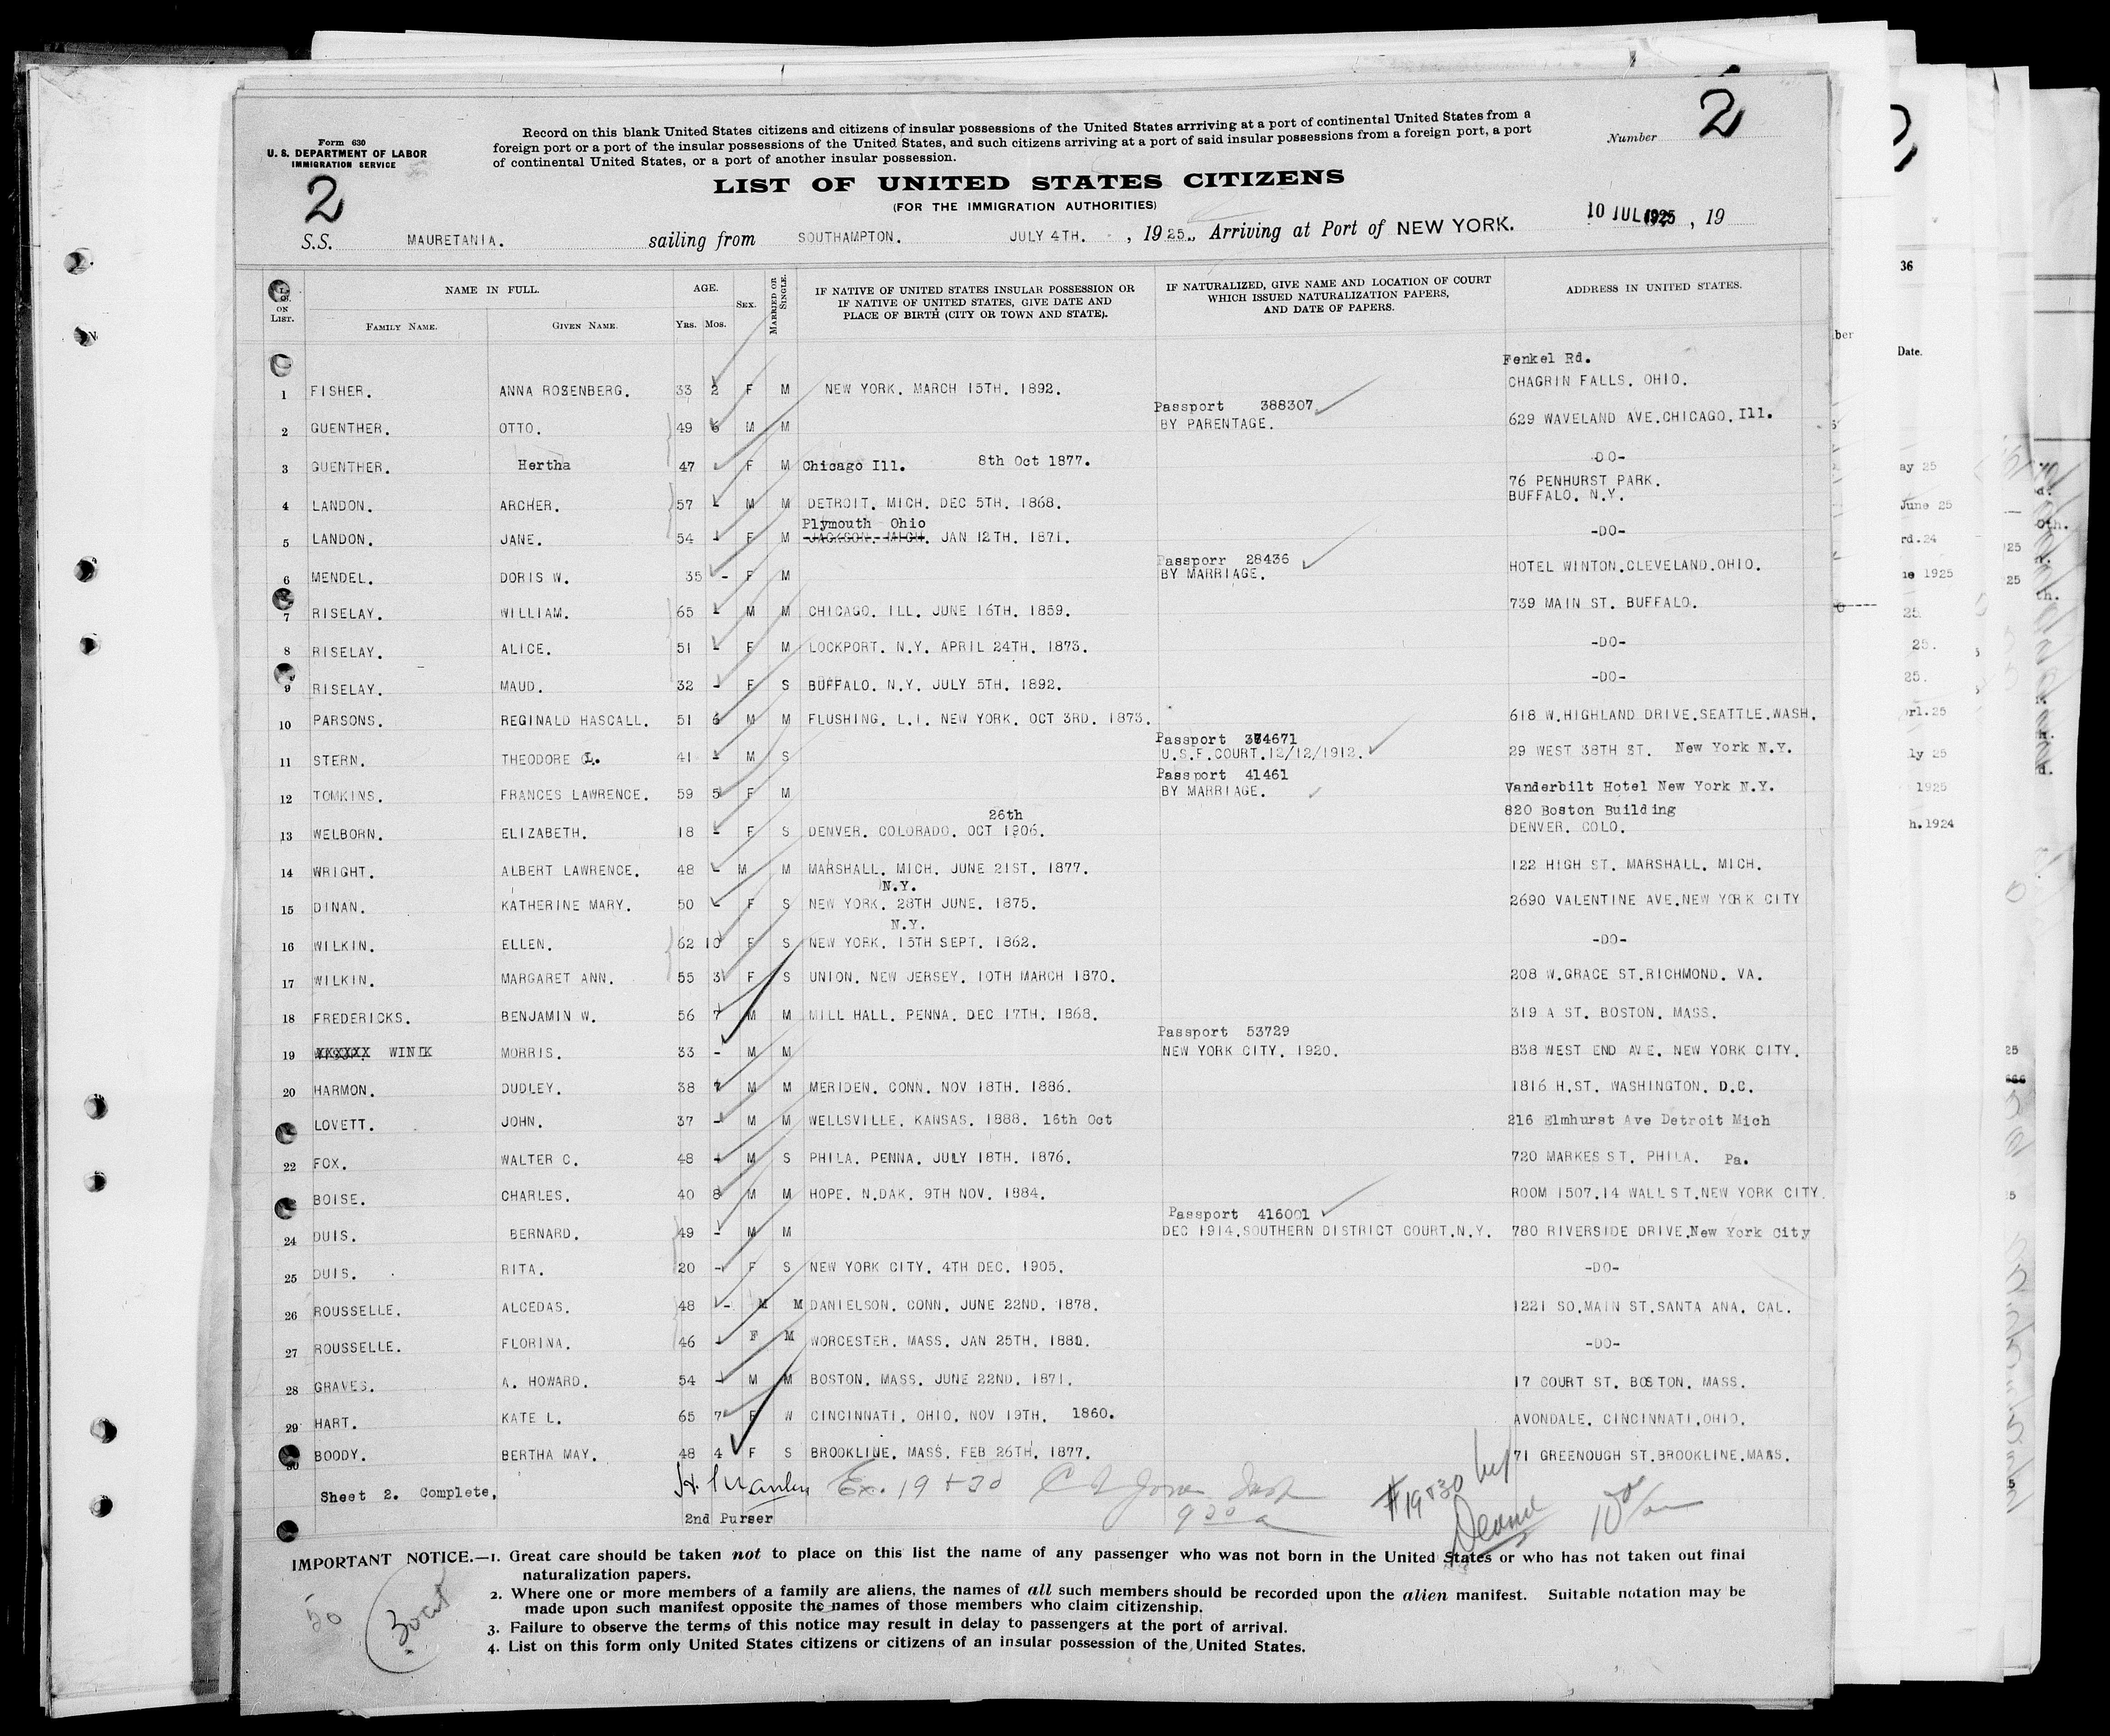 Form 630
U. S. DEPARTMENT OF LABOR
IMMIGRATION SERVICE
2
Record on this blank United States citizens and citizens of insular possessions of the United States arrriving at a port of continental United States from a
foreign port or a port of the insular possessions of the United States, and such citizens arriving at a port of said insular possessions from a foreign port, a port
of continental United States, or a port of another insular possession.
Number 2
LIST OF UNITED STATES CITIZENS
(FOR THE IMMIGRATION AUTHORITIES)
S.S. MAURETANIA. sailing from SOUTHAMPTON. JULY 4TH. , 1925., Arriving at Port of NEW YORK. 10 JUL 1925 , 19
ON LIST. NAME IN FULL. FAMILY NAME. GIVEN NAME. AGE. YRS. MOS. SEX. MARRIED OR SINGLE. IF NATIVE OF UNITED STATES INSULAR POSSESSION OR IF NATIVE OF UNITED STATES, GIVE DATE AND PLACE OF BIRTH (CITY OR TOWN AND STATE). IF NATURALIZED, GIVE NAME AND LOCATION OF COURT WHICH ISSUED NATURALIZATION PAPERS, AND DATE OF PAPERS. ADDRESS IN UNITED STATES.
Fenkel Rd.
1 FISHER. ANNA ROSENBERG. 33 2 F M NEW YORK. MARCH 15TH. 1892. CHAGRIN FALLS. OHIO.
Passport 388307
2 GUENTHER. OTTO. 49 6 M M BY PARENTAGE. 629 WAVELAND AVE.CHICAGO. Ill.
3 GUENTHER. Hertha 47 F M Chicago Ill. 8th Oct 1877. -DO-
76 PENHURST PARK.
4 LANDON. ARCHER. 57 - M M DETROIT. MICH. DEC 5TH. 1868. BUFFALO. N.Y.
Plymouth Ohio
5 LANDON. JANE. 54 - F M JACKSON. MICH. JAN 12TH. 1871. -DO-
Passporr 28436
6 MENDEL. DORIS W. 35 - F M BY MARRIAGE. HOTEL WINTON.CLEVELAND.OHIO.
7 RISELAY. WILLIAM. 65 - M M CHICAGO. ILL. JUNE 16TH. 1859. 739 MAIN ST. BUFFALO.
8 RISELAY. ALICE. 51 - F M LOCKPORT. N.Y. APRIL 24TH. 1873. -DO-
9 RISELAY. MAUD. 32 - F S BUFFALO. N.Y. JULY 5TH. 1892. -DO-
10 PARSONS. REGINALD HASCALL. 51 6 M M FLUSHING. L.I. NEW YORK. OCT 3RD. 1873. 618 W.HIGHLAND DRIVE.SEATTLE.WASH.
Passport 374671
11 STERN. THEODORE L. 41 - M S U.S.F.COURT.12/12/1912. 29 WEST 38TH ST. New York N.Y.
Passport 41461
12 TOMKINS. FRANCES LAWRENCE. 59 5 F M BY MARRIAGE. Vanderbilt Hotel New York N.Y.
26th 820 Boston Building
13 WELBORN. ELIZABETH. 18 - F S DENVER. COLORADO. OCT 1906. DENVER. COLO.
14 WRIGHT. ALBERT LAWRENCE. 48 - M M MARSHALL. MICH. JUNE 21ST. 1877. 122 HIGH ST. MARSHALL. MICH.
N.Y.
15 DINAN. KATHERINE MARY. 50 - F S NEW YORK. 28TH JUNE. 1875. 2690 VALENTINE AVE.NEW YORK CITY
N.Y.
16 WILKIN. ELLEN. 62 10 F S NEW YORK. 15TH SEPT. 1862. -DO-
17 WILKIN. MARGARET ANN. 55 3 F S UNION. NEW JERSEY. 10TH MARCH 1870. 208 W.GRACE ST.RICHMOND. VA.
18 FREDERICKS. BENJAMIN W. 56 7 M M MILL HALL. PENNA. DEC 17TH. 1868. 319 A ST. BOSTON. MASS.
Passport 53729
19 WINIK MORRIS. 33 - M M NEW YORK CITY. 1920. 838 WEST END AVE. NEW YORK CITY.
20 HARMON. DUDLEY. 38 7 M M MERIDEN. CONN. NOV 18TH. 1886. 1816 H.ST. WASHINGTON. D.C.
LOVETT. JOHN. 37 - M M WELLSVILLE. KANSAS. 1888. 16th Oct 216 Elmhurst Ave Detroit Mich
22 FOX. WALTER C. 48 - M S PHILA. PENNA. JULY 18TH. 1876. 720 MARKES ST. PHILA. Pa.
BOISE. CHARLES. 40 8 M M HOPE. N.DAK. 9TH NOV. 1884. ROOM 1507.14 WALL ST.NEW YORK CITY.
Passport 416001
24 DUIS. BERNARD. 49 - M M DEC 1914.SOUTHERN DISTRICT COURT.N.Y. 780 RIVERSIDE DRIVE.New York City
25 DUIS. RITA. 20 - F S NEW YORK CITY. 4TH DEC. 1905. -DO-
26 ROUSSELLE. ALCEDAS. 48 - M M DANIELSON. CONN. JUNE 22ND. 1878. 1221 SO.MAIN ST.SANTA ANA. CAL.
27 ROUSSELLE. FLORINA. 46 - F M WORCESTER. MASS. JAN 25TH. 1880. -DO-
28 GRAVES. A. HOWARD. 54 - M M BOSTON. MASS. JUNE 22ND. 1871. 17 COURT ST. BOSTON. MASS.
29 HART. KATE L. 65 7 F W CINCINNATI. OHIO. NOV 19TH. 1860. AVONDALE. CINCINNATI.OHIO.
30 BOODY. BERTHA MAY. 48 4 F S BROOKLINE. MASS. FEB 26TH. 1877. 71 GREENOUGH ST.BROOKLINE.MASS.
Sheet 2. Complete. Ex. 19 + 30 #19+30
2nd Purser 9 30 a 10 00/am
IMPORTANT NOTICE.—1. Great care should be taken not to place on this list the name of any passenger who was not born in the United States or who has not taken out final
naturalization papers.
2. Where one or more members of a family are aliens, the names of all such members should be recorded upon the alien manifest. Suitable notation may be
made upon such manifest opposite the names of those members who claim citizenship.
3. Failure to observe the terms of this notice may result in delay to passengers at the port of arrival.
4. List on this form only United States citizens or citizens of an insular possession of the United States.
50
36
ber
Date.
ay 25
June 25
rd.24
1925
25
25.
25.
rl.25
ly 25
1925
h.1924